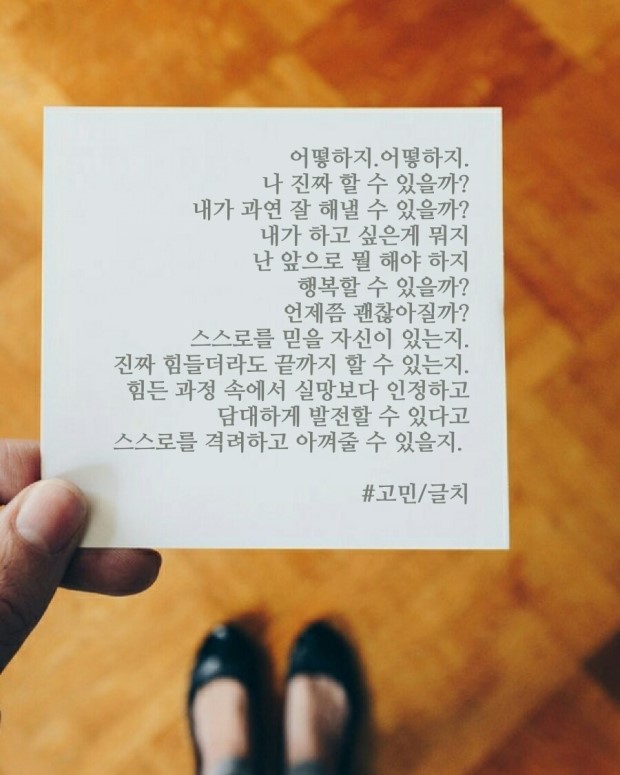 어떻하지.어떻하지.
나 진짜 할 수 있을까?
내가 과연 잘 해낼 수 있을까?
내가 하고 싶은게 뭐지
난 앞으로 뭘 해야 하지
행복할 수 있을까?
언제쯤 괜찮아질까?
스스로를 믿을 자신이 있는지.
진짜 힘들더라도 끝까지 할 수 있는지.
힘든 과정 속에서 실망보다 인정하고
담대하게 발전할 수 있다고
스스로를 격려하고 아껴줄 수 있을지.
#고민/글치